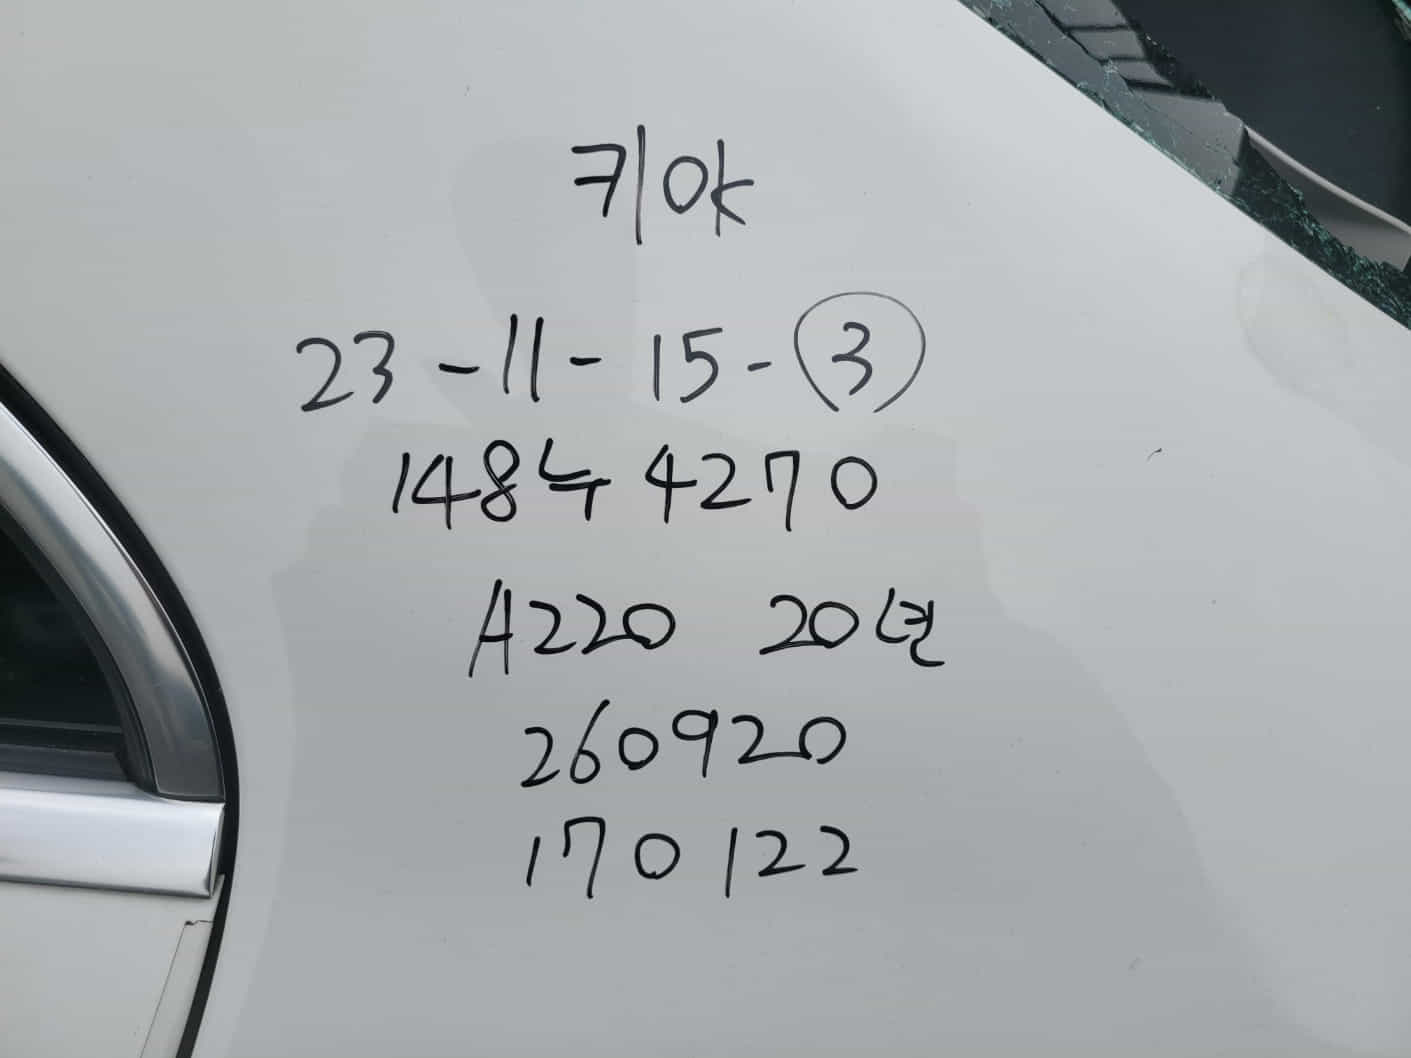 키ok
23-11-15-③
148누4270
A220 20년
260920
170122